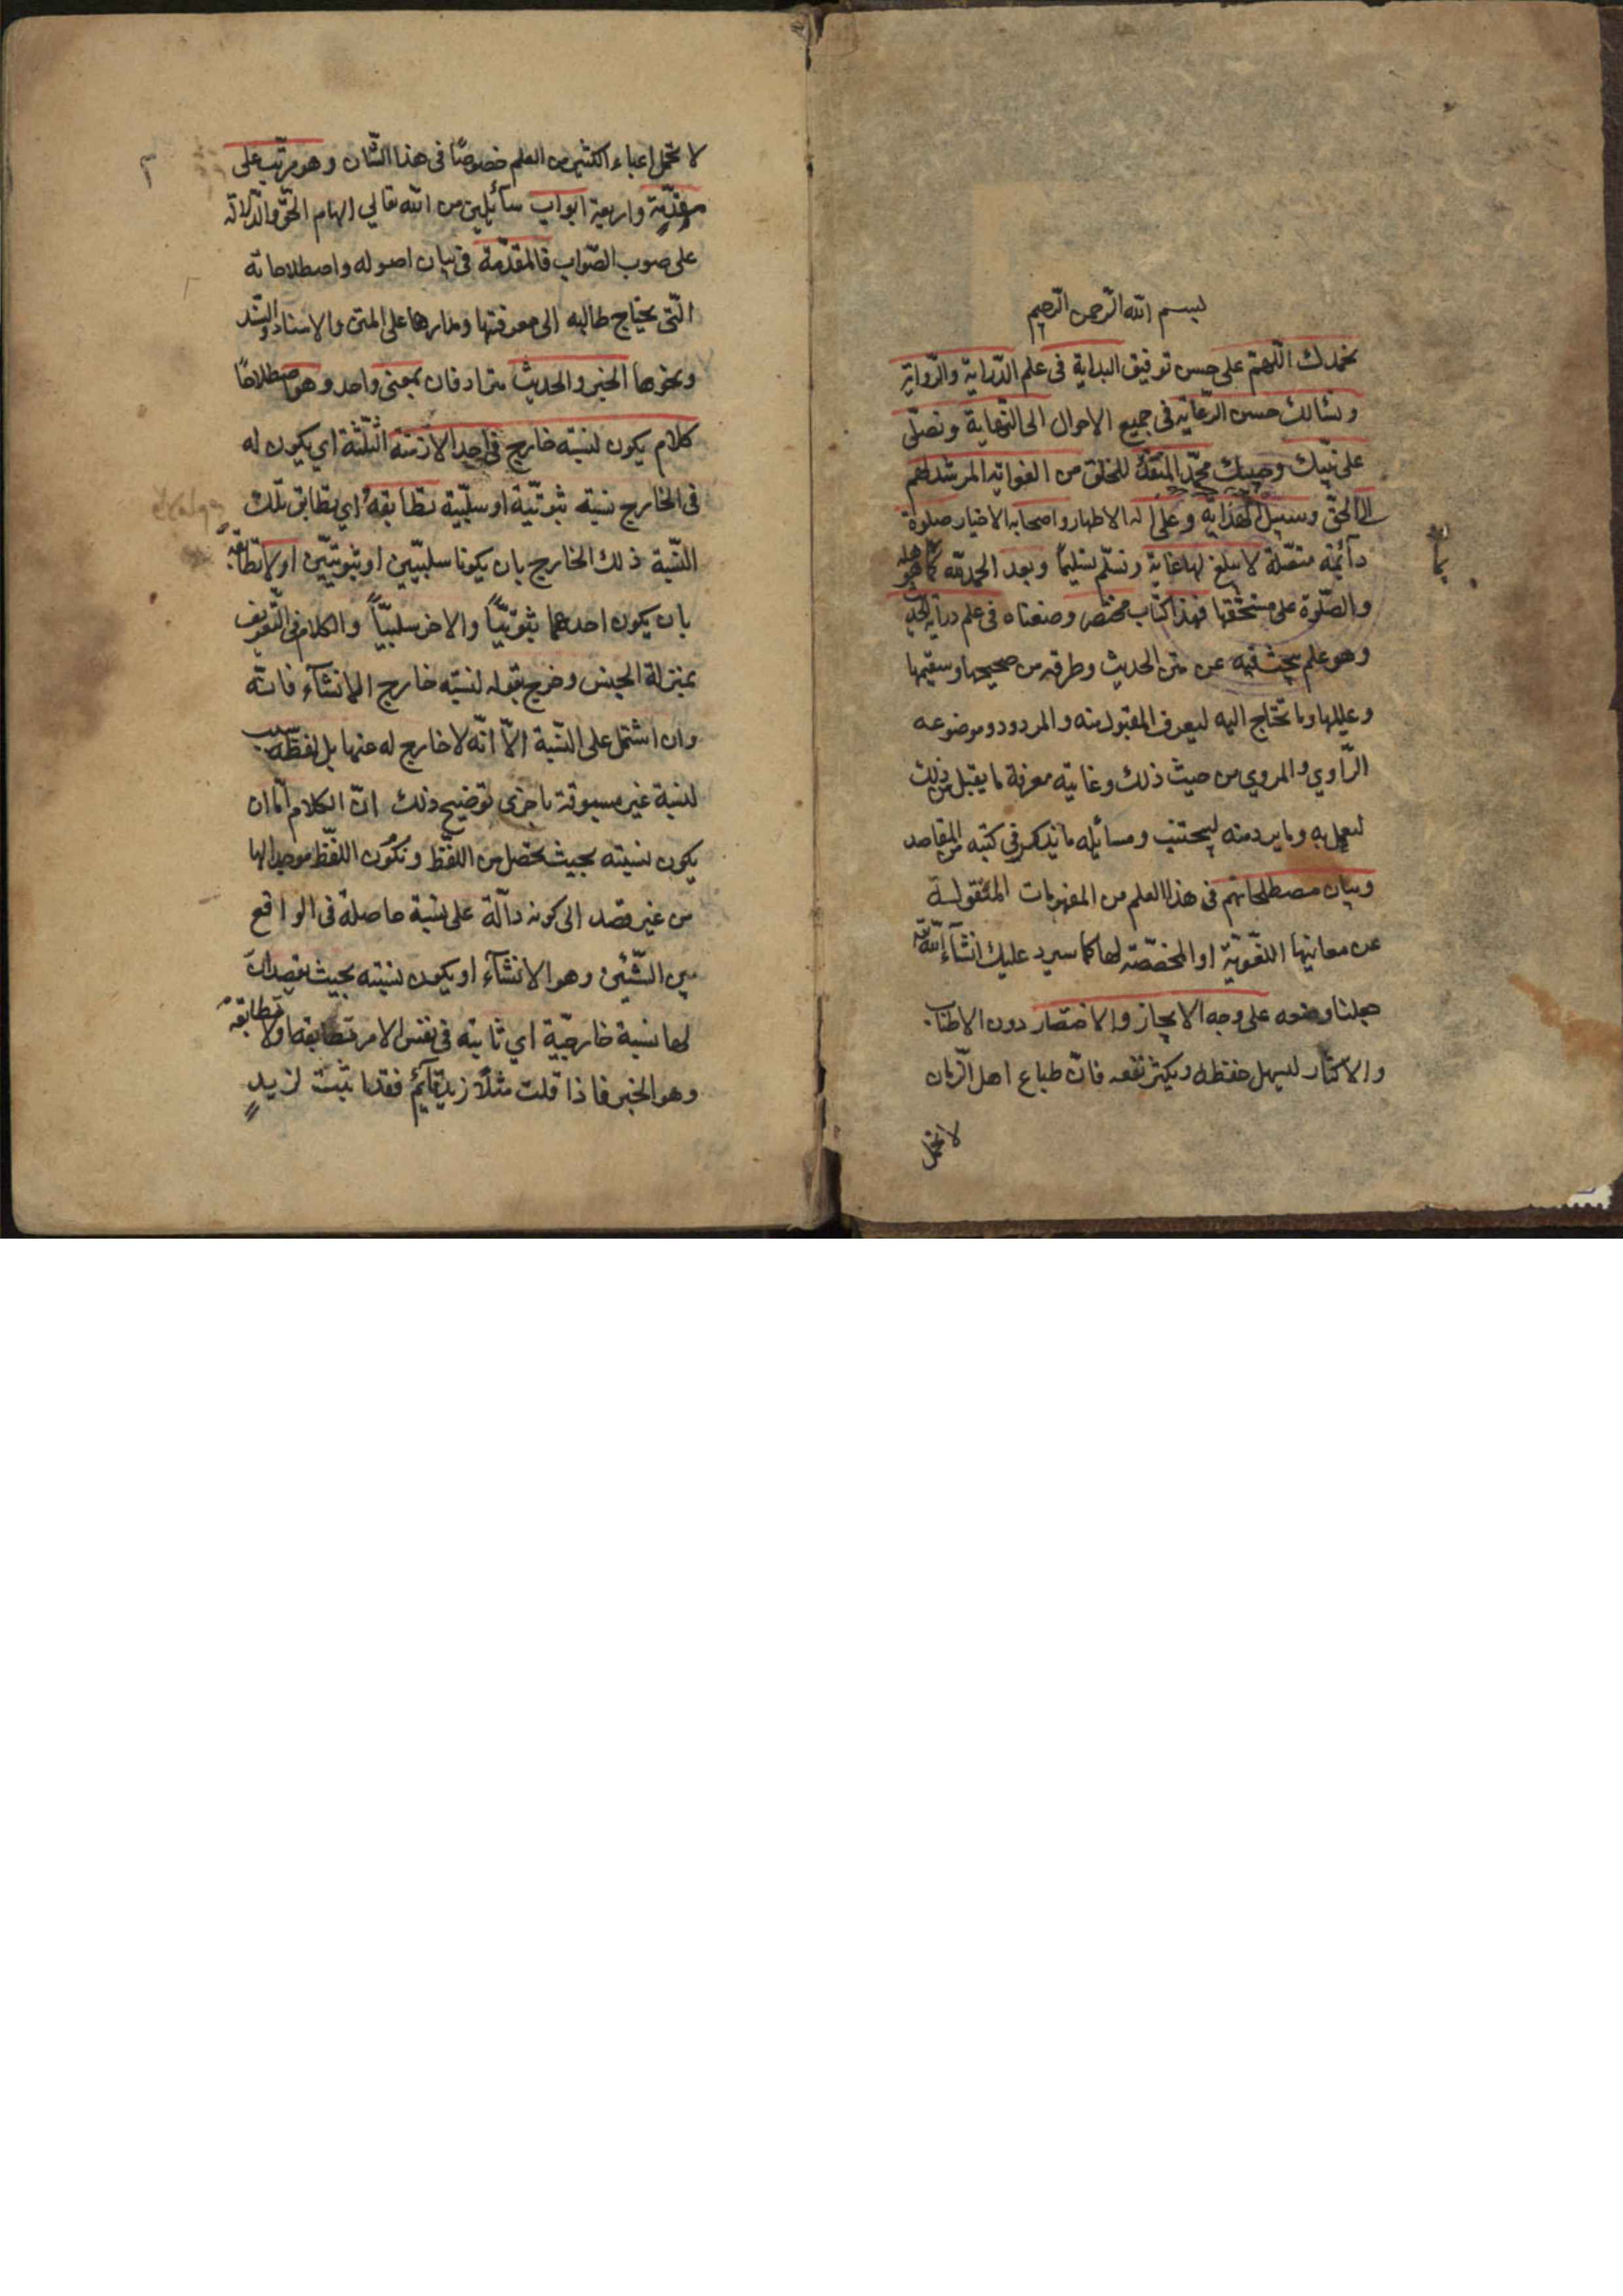 بسم الله الرحمن الرحيم
نحمدك اللّهمّ على حسن توفيق البداية فى علم الدّراية والرّواية
ونسألك حسن الرّعاية فى جميع الاحوال الى النّهاية ونصلّى
على نبيّك وحبيبك محمّد المنقذ للخلق من الغواية المرشد لهم
الى الحقّ وسبيل الهداية وعلى اله الاطهار واصحابه الاخيار صلوة
دآئمة متصلة لا يبلغ لها غاية ونسلّم تسليمًا وبعد الحمد لله كما هو اهله
والصّلوة على مستحقها فهذا كتاب مختصر وضعناه فى علم دراية الحديث
وهو علم يبحث فيه عن متن الحديث وطرقه من صحيحها وسقيمها
وعليلها وما تحتاج اليه ليعرف المقبول منه والمردود وموضوعه
الرّاوي والمروي من حيث ذلك وغايته معرفة ما يقبل من ذلك
ليعمل به وما يرد منه ليجتنب ومسآئله ما يذكر فى كتبه من المقاصد
وبيان مصطلحاتهم فى هذا العلم من المفهومات المنقولة
عن معانيها اللّغويّة او المخصّصة لها كما سيرد عليك انشآء الله تعالى
جعلنا وضعه على وجه الايجاز والاختصار دون الاطناب
والاكثار ليسهل حفظه ويكثر نفعه فانّ طباع اهل الزّمان
لا تحمل
لا تحمل اعباء الكثير من العلم خصوصًا فى هذا الشّان وهو مرتّب على
مقدّمة واربعة ابواب سآئلين من الله تعالي الهام الحقّ والدّلالة
على صوب الصّواب فالمقدّمة فى بيان اصوله واصطلاحاته
الّتى يحتاج طالبه الى معرفتها ومدارها على المتن والاسناد والسّند
ونحوها الخبر والحديث مترادفان بمعنى واحد وهو اصطلاحًا
كلام يكون لنسبته خارج فى احد الازمنة الثلثة اي يكون له
فى الخارج نسبة ثبوتيّة او سلبيّة تطابقهُ اي تطابق تلك
النّسبة ذلك الخارج بان يكونا سلبيّين او ثبوتيّين او لا تطابقهُ
بان يكون احدهما ثبوتيّاً والاخر سلبيّاً والكلام فى التّعريف
بمنزلة الجنس وخرج بقوله لنسبته خارج الانشآء فانّه
وان اشتمل على النّسبة الّا انّه لا خارج له عنها بل لفظه سبب
لنسبة غير مسبوقة باخرى توضيح ذلك انّ الكلام امّا ان
يكون نسبته بحيث تحصل من اللّفظ وتكُون اللّفظ موجدا لها
من غير قصد الى كونه دآلّة على نسبة حاصلة فى الواقع
بين الشّيئين وهو الانشآء او يكون نسبته بحيث يقصد انّ
لها نسبة خارجيّة اي ثابتة فى نفس الامر تطابقه او لا تطابقهُ
وهو الخبر فاذا قلت مثلًا زيد قآئم فقد اثبت لزيدٍ